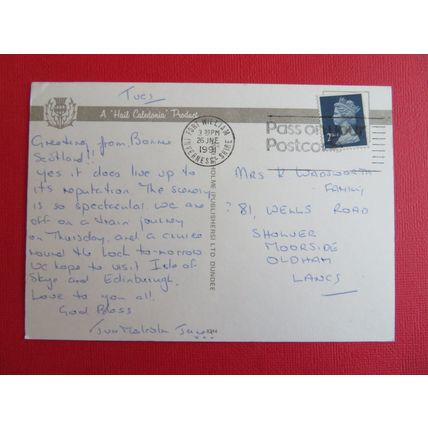 Tues
A "Hail Caledonia" Product
FORT WILLIAM
INVERNESS-SHIRE
26 JNE
1991
Pass on your
Postcode
2nd
Greetings from Bonnie
Scotland!!
yes it does live up to
its reputation The scenery
is so spectacular. we are
off on a train journey
on Thursday, and a cruise
round the Loch to-morrow
we hope to visit Isle of
Skye and Edinburgh.
Love to you all.
God Bless
Malcolm
HOLME (PUBLISHERS) LTD DUNDEE
MRS K WADSWORTH
FAMILY
81, WELLS ROAD
SHOLVER
MOORSIDE
OLDHAM
LANCS